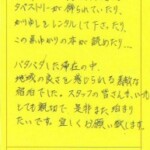 タペストリーが飾られていたり、
かり傘をレンタルして下さったり、
この島ゆかりの本が読めたり...
バタバタした滞在の中、
地域の良さを感じられる素敵な
宿泊でした。スタッフの皆さんも、いつ
しても親切で 是非また泊まり
たいです。宜しくお願い致します。